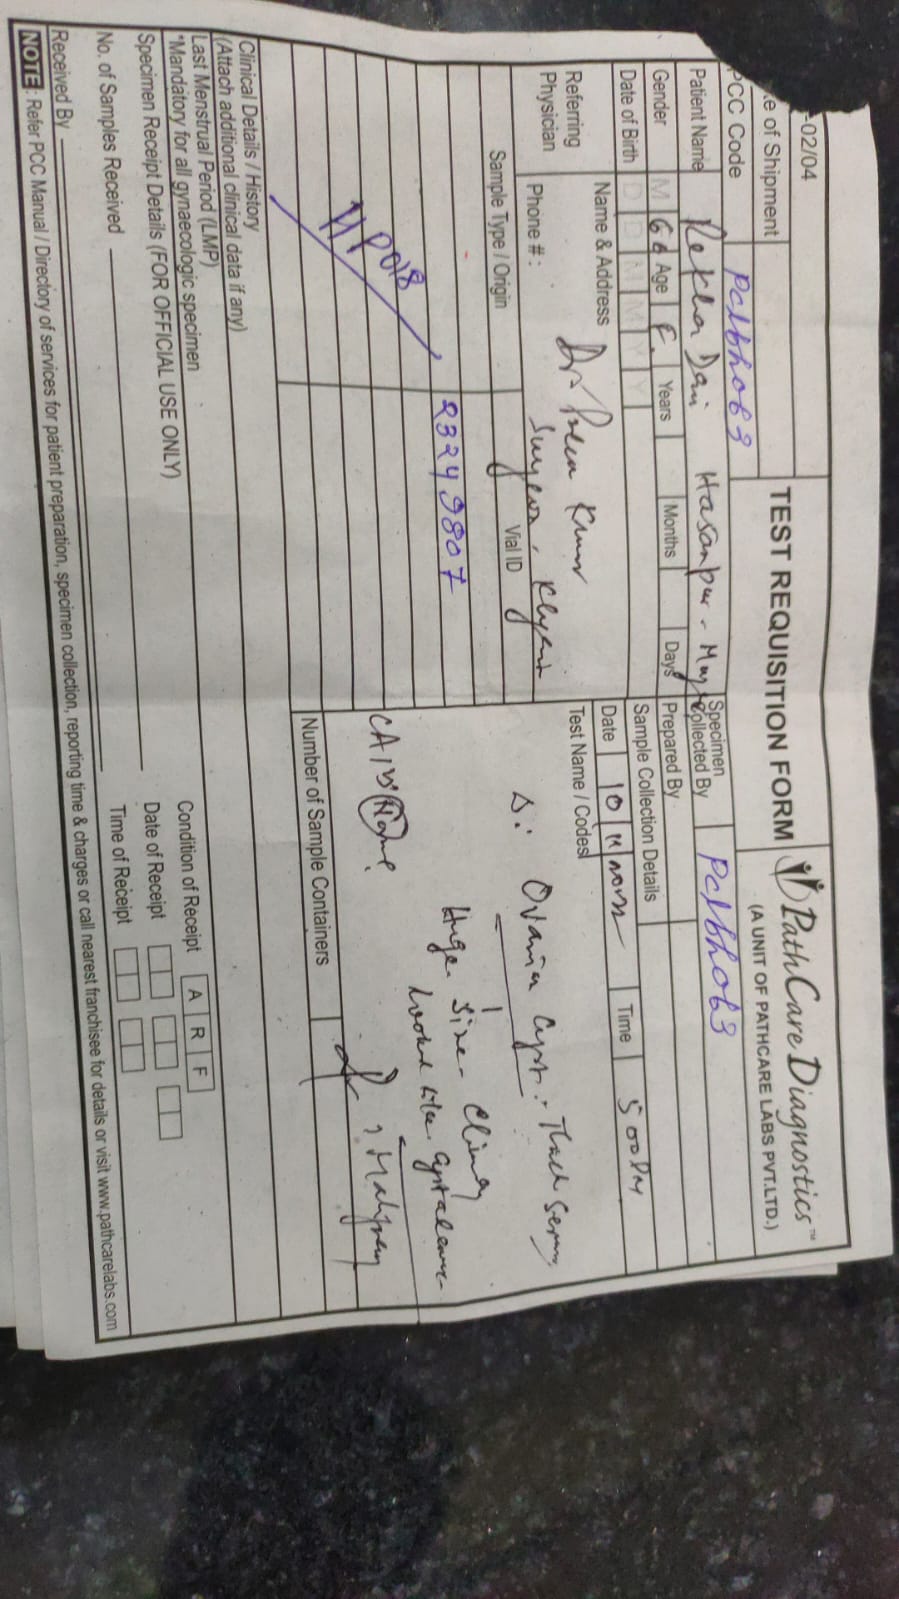 -02/04
TEST REQUISITION FORM
PathCare Diagnostics™
(A UNIT OF PATHCARE LABS PVT.LTD.)
te of Shipment
PCC Code
Specimen
Collected By
Patient Name Rekha Hasanpur -
Prepared By
Gender M 60 Age F. Years Months Days
Sample Collection Details
Date of Birth D D M M Y Y
Date 10 Time 5 00 PM
Referring
Physician
Name & Address
Dr Prem Kumar
Surgeon,
Phone # :
Test Name / Codes
Δ: Ovarian Cyst.
Huge Size -
looked like
CA 125
Sample Type / Origin
Vial ID
23249807
Number of Sample Containers
Clinical Details / History
(Attach additional clinical data if any)
Last Menstrual Period (LMP)
*Mandatory for all gynaecologic specimen
Specimen Receipt Details (FOR OFFICIAL USE ONLY)
Condition of Receipt A R F
Date of Receipt
No. of Samples Received
Time of Receipt
Received By
NOTE : Refer PCC Manual / Directory of services for patient preparation, specimen collection, reporting time & charges or call nearest franchisee for details or visit www.pathcarelabs.com